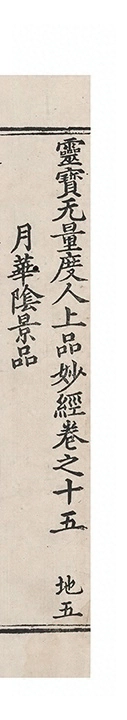 靈寶无量度人上品妙經卷之十五 地五
月華陰景品